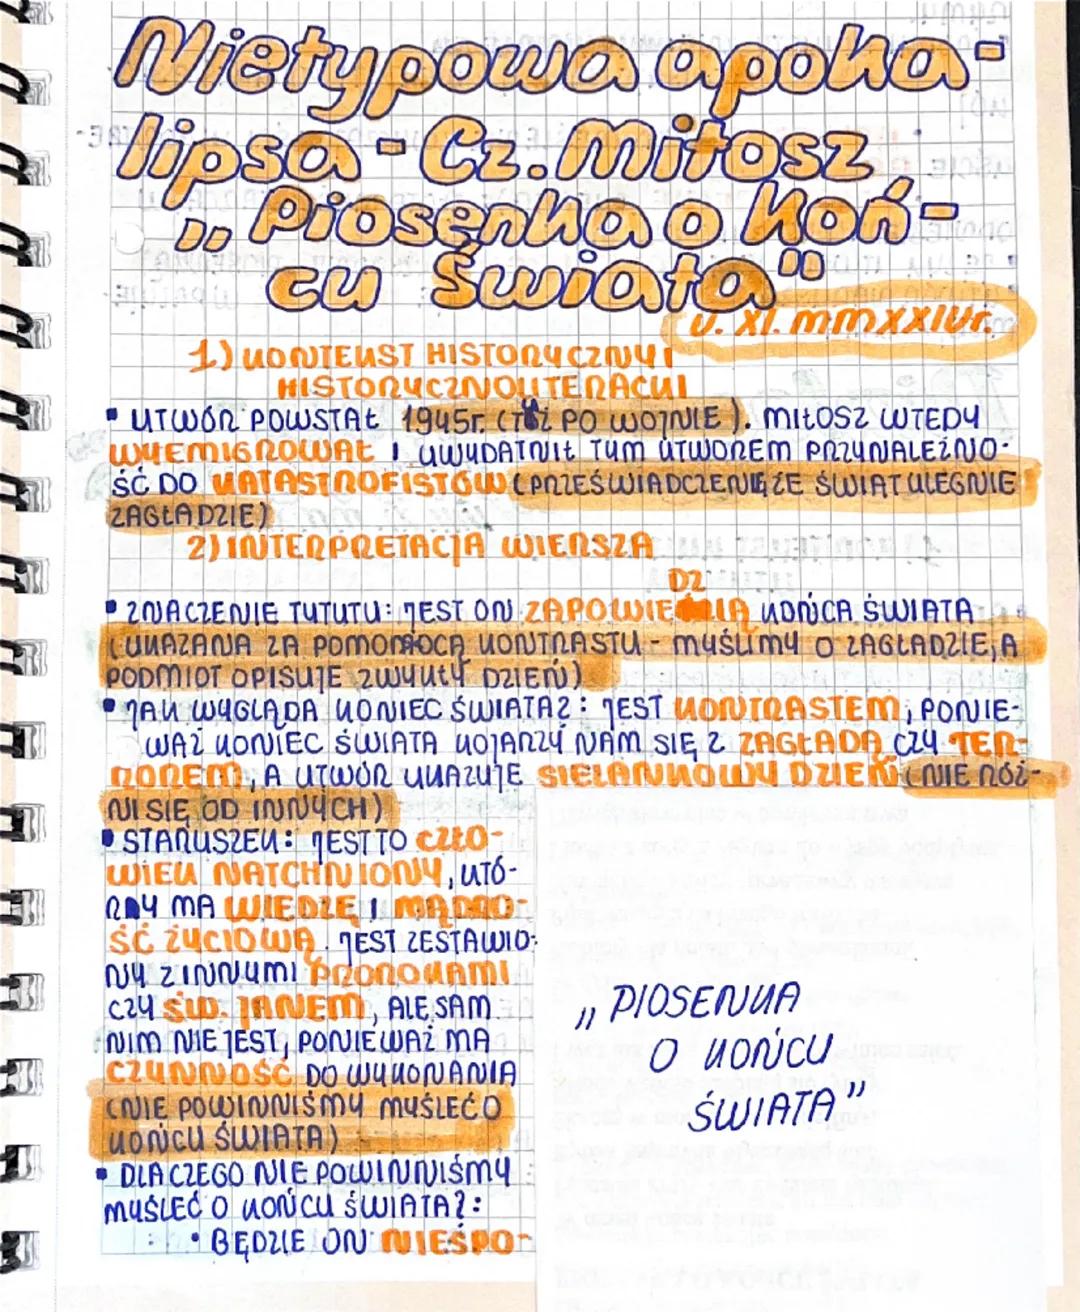 Nietypowa apoka-
lipsa - Cz. Miłosz
„Piosenka o koń-
cu świata"
V. XI. MMXXIVr.
1) KONTEKST HISTORYCZNY I
HISTORYCZNOLITERACKI
• UTWÓR POWSTAŁ 1945r. (TUŻ PO WOJNIE). MIŁOSZ WTEDY
WYEMIGROWAŁ I UWYDATNIŁ TYM UTWOREM PRZYNALEŻNO-
ŚĆ DO KATASTROFISTÓW (PRZEŚWIADCZENIE, ŻE ŚWIAT ULEGNIE
ZAGŁADZIE)
2) INTERPRETACJA WIERSZA
DZ
• ZNACZENIE TYTUTU: JEST ON ZAPOWIE IĄ KOŃCA ŚWIATA
(UKAZANA ZA POMOMOCĄ KONTRASTU - MYŚLIMY O ZAGŁADZIE, A
PODMIOT OPISUJE ZWYKŁY DZIEŃ)
• JAK WYGLĄDA KONIEC ŚWIATA?: JEST KONTRASTEM, PONIE-
WAŻ KONIEC ŚWIATA KOJARZY NAM SIĘ Z ZAGŁADĄ CZY TER-
ROREM, A UTWÓR UKAZUJE SIELANKOWY DZIEŃ (NIE RÓŻ-
NI SIĘ OD INNYCH)
• STARUSZEK: JEST TO CZŁO-
WIEK NATCHNIONY, KTÓ-
RY MA WIEDZĘ I MĄDRO-
ŚĆ ŻYCIOWĄ. JEST ZESTAWIO-
NY Z INNYMI PROROKAMI
CZY ŚW. JANEM, ALE SAM
NIM NIE JEST, PONIEWAŻ MA
CZYNNOŚĆ DO WYKONANIA
(NIE POWINNIŚMY MYŚLEĆ O
KOŃCU ŚWIATA)
• DLACZEGO NIE POWINNIŚMY
MYŚLEĆ O KOŃCU ŚWIATA?:
• BĘDZIE ON NIESPO-
„PIOSENKA
O KOŃCU
ŚWIATA"